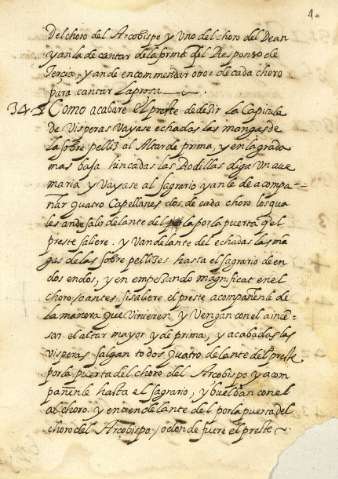 4.
Del choro del Arcobispo y Uno del choro del Dean
yanla de cantar dela prima del Responso de
Tercia, yande encomendar otro de cada choro
para cantar La prosa
343 Como acabare El preste de dedir La Capitula
de Visperas Vayase echadas las mangas de
la sobre pelliz al Altar de prima, y en la grada
mas baja hincadas las Rodillas diga Un aue
maria y Vayase al Sagrario yanle de acompa
ñar quatro Capellanes dos de cada choro los qua
les an de salo delante del por la puerta q el
preste Saliere. y Van delante del echadas las mā
gas de las Sobre pellizes hasta el Sagrario de en
dos en dos, y en empeçando magnificat en el
choro, o antes, si saliere el preste acompañenle de
la manera que Vinieren, y Vengan con el a incen
sar el altar mayor y de prima, y acabadas las
visperas Salgan todos quatro delante del preste
por la puerta del choro del Arcobispo y acom
pañenle hasta el Sagrario, y buelban con el
al choro. y entren delante del por la puerta del
choro del Arcobispo, o donde fuere el preste